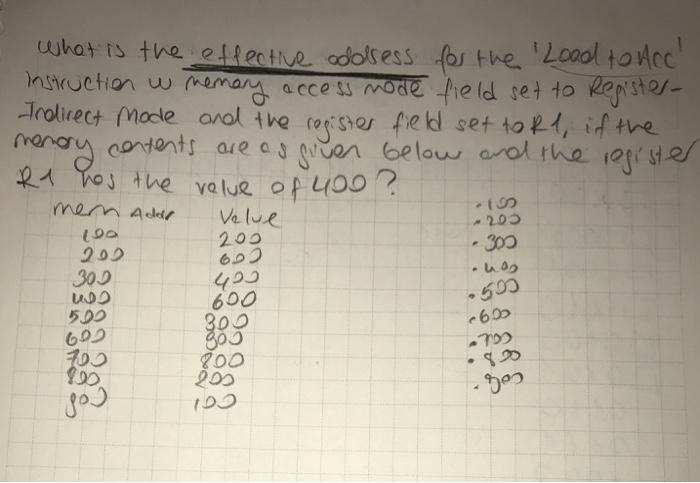 What is the effective address for the 'Load to Acc'
instruction w memory access mode field set to Register-
Indirect Mode and the register field set to R1, if the
memory contents are as given below and the register
R1 has the value of 400?
mem Addr Value
100 200
200 600
300 400
400 600
500 300
600
700 800
800 200
900 100
• 100
• 200
• 300
• 400
• 500
• 600
• 700
• 800
• 900